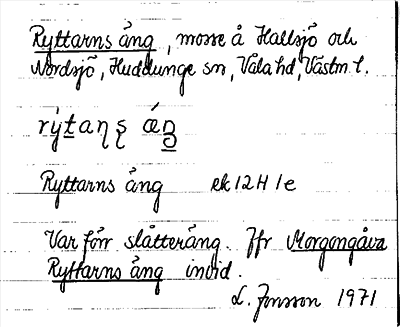 Ryttarns äng, mosse å Hallsjö och
Nordsjö, Huddunge sn, Våla hd, Västm l.
rýtaɳʂ áŋ
Ryttarns äng ek 12H 1e
Var förr slåtteräng. Jfr Morgongåva
Ryttarns äng invid.
L. Jonsson 1971